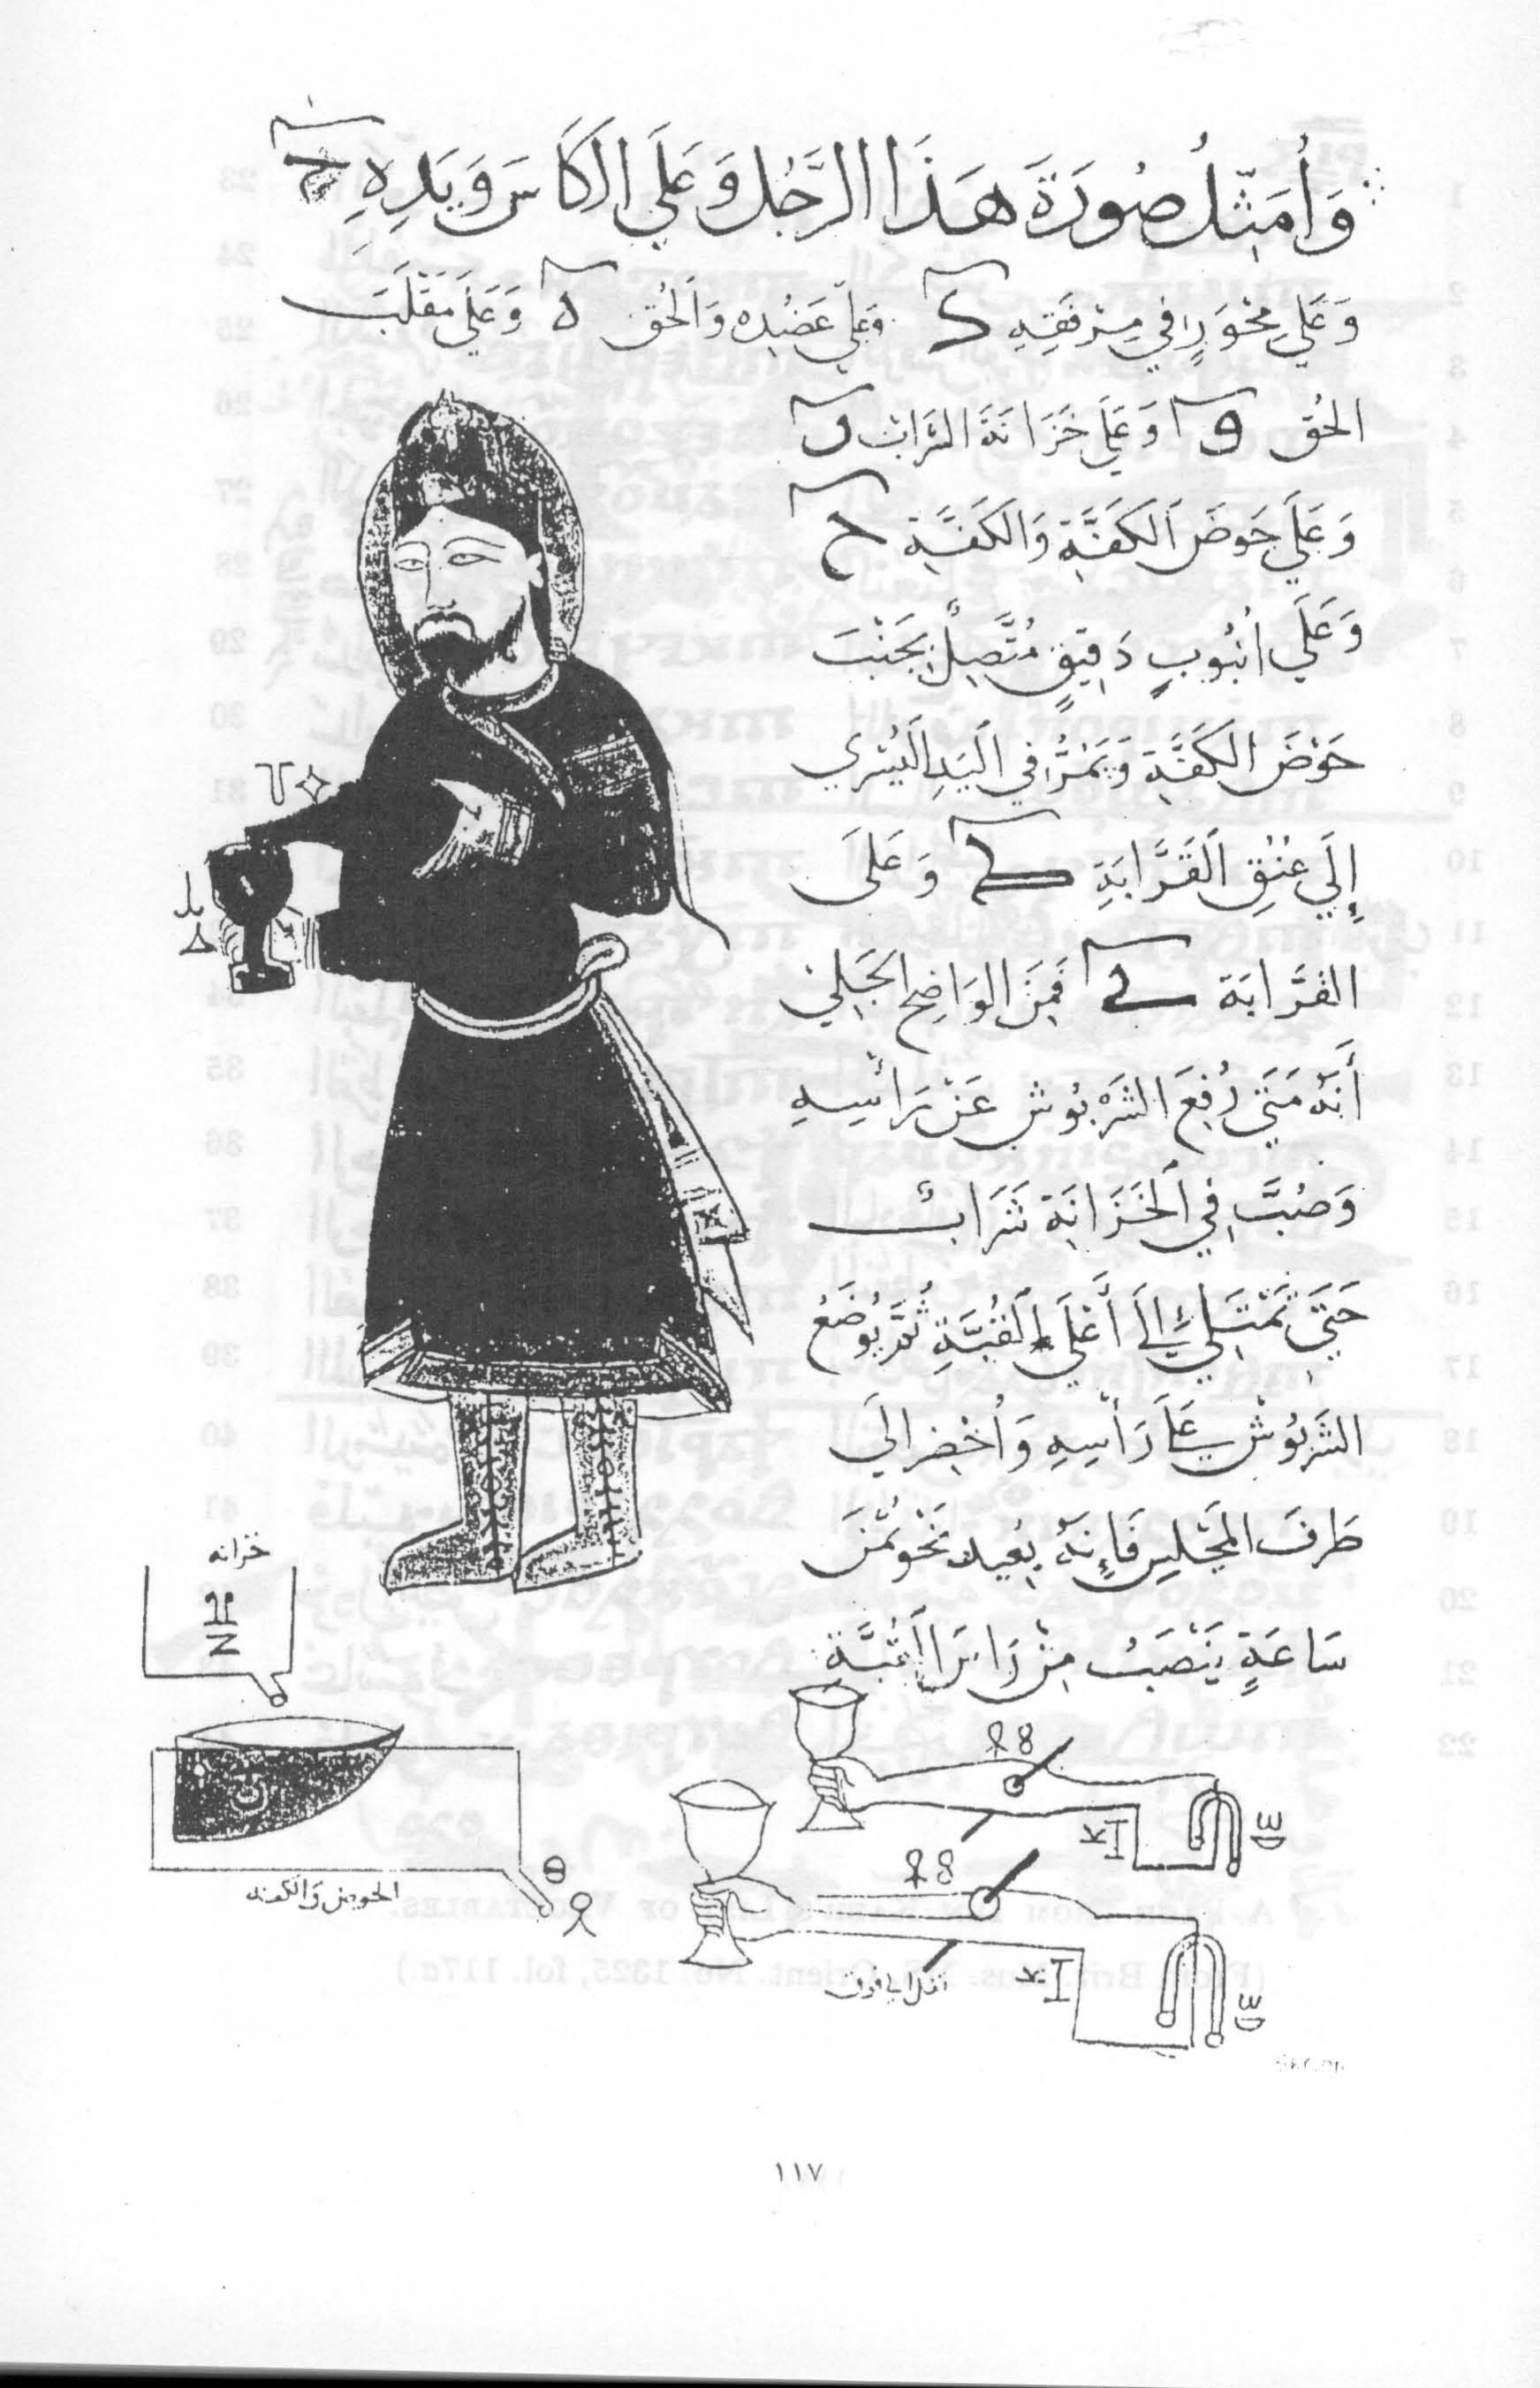 وَأُمَثِّلُ صُورَةَ هَذَا الرَّجُلِ وَعَلَى الكَاسَ وَيَدِهِ
وَعَلَى مِحْوَرٍ فِي مِرْفَقِهِ وَعَلَى عَضُدِه وَالحُق ه وَعَلَى مَقْلَبَ
الحُق و وَعَلَى خَزَانَةَ الشَّرَاب
وَعَلَى حَوضَ الكَفَّةِ وَالكَفَّةِ ح
وَعَلَى أنْبُوبٍ دَقِيقٍ مُتَّصِلٍ بِجَنْبَ
حَوْضَ الكَفَّةِ وَيَمُرُّ فِي اليَدِ اليُسْرى
إِلَى عُنُقِ القَرَّابَةِ وَعَلَى
القَرَّابَة فَمِنَ الوَاضِحِ الجَلِيّ
أَنَّهُ مَتَى رُفِعَ الشَرْبُوش عَنْ رَأسِهِ
وَصُبَّ فِي الخَزَانَةِ شَرَابٌ
حَتَّى تَمْتَلِئ إِلَى أَعْلَى القُبَّةِ ثُمَّ يُوضَعُ
الشَرْبُوش عَلَى رَأْسِهِ وَأُحْضِر إلَى
طَرف المَجْلِسِ فَإِنَّهُ بَعِيد نَحْو ثُمْنَ
سَاعَةٍ يَنْصَبُ مِنْ
خزانه
الحوض والكفه
ثقل الى فوق
١١٧